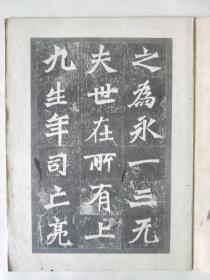 之為永一二无
夫世在所有上
九生年司亡亮